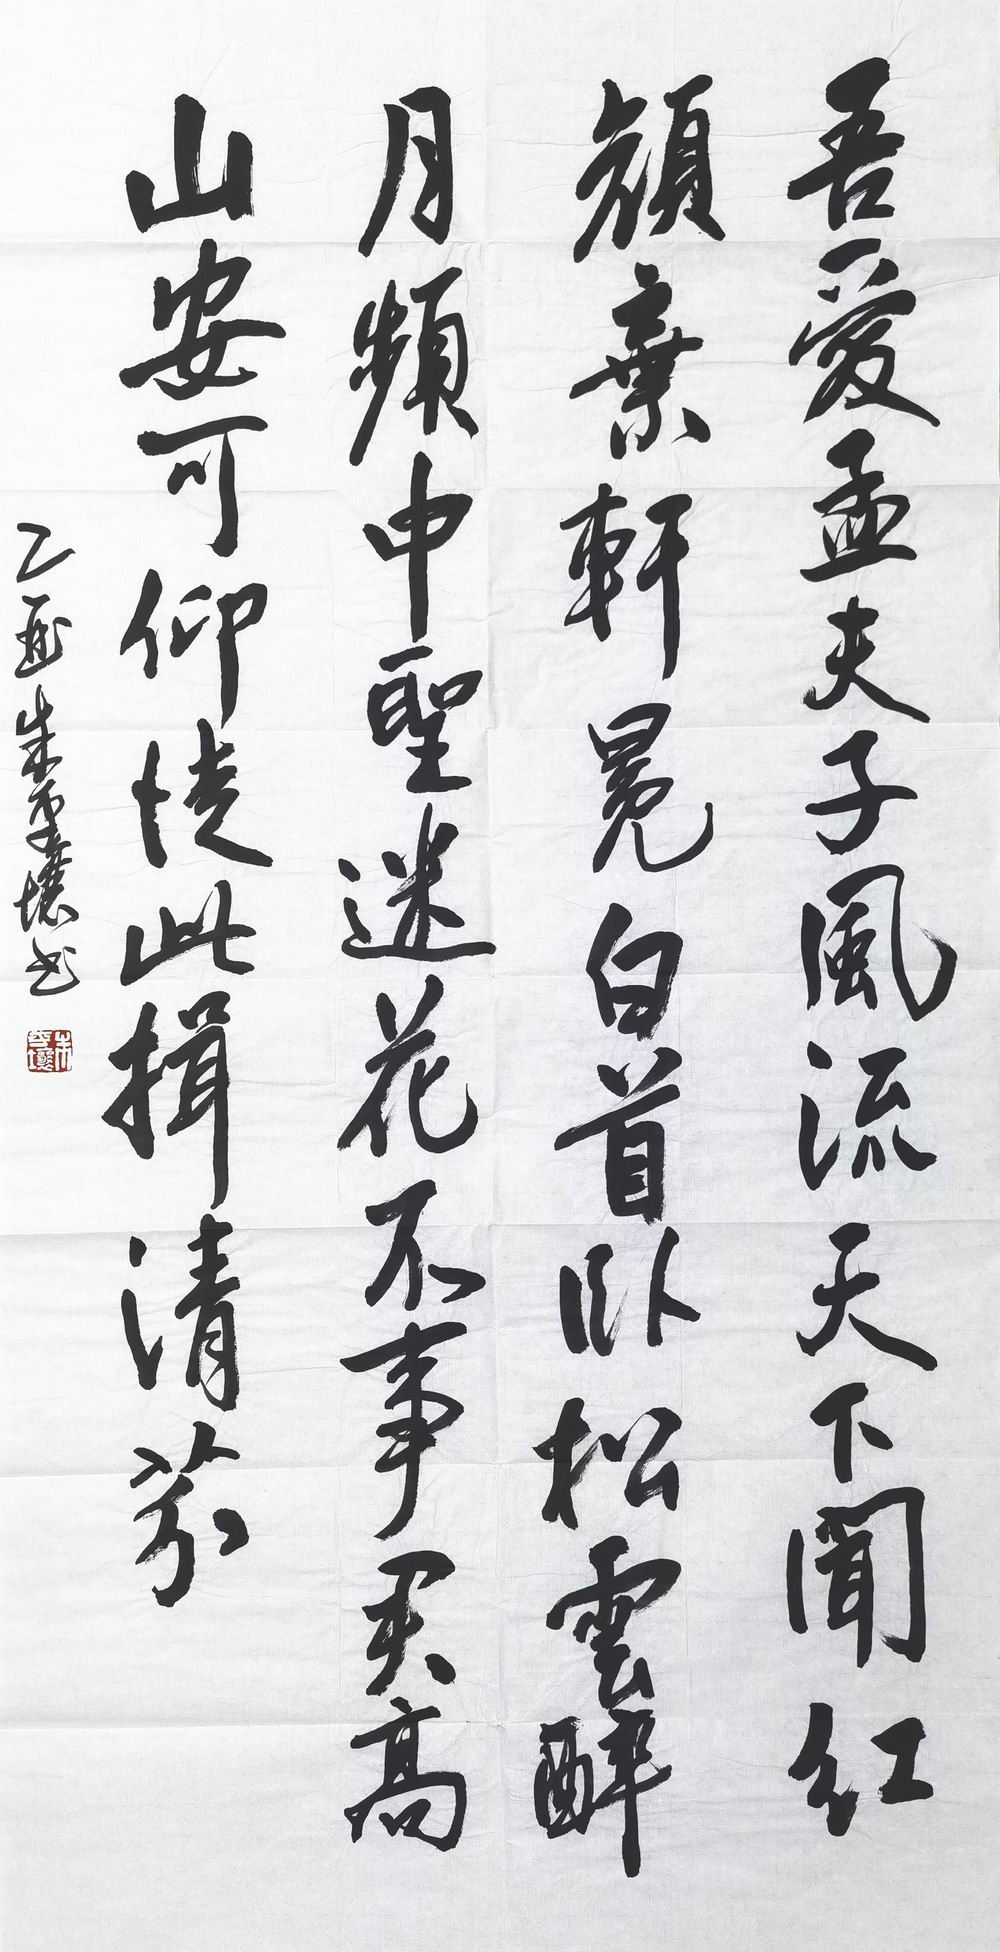 吾愛孟夫子風流天下聞紅
顔棄軒冕白首卧松雲醉
月頻中聖迷花不事君高
山安可仰徒此揖清芬
乙 朱 壤书